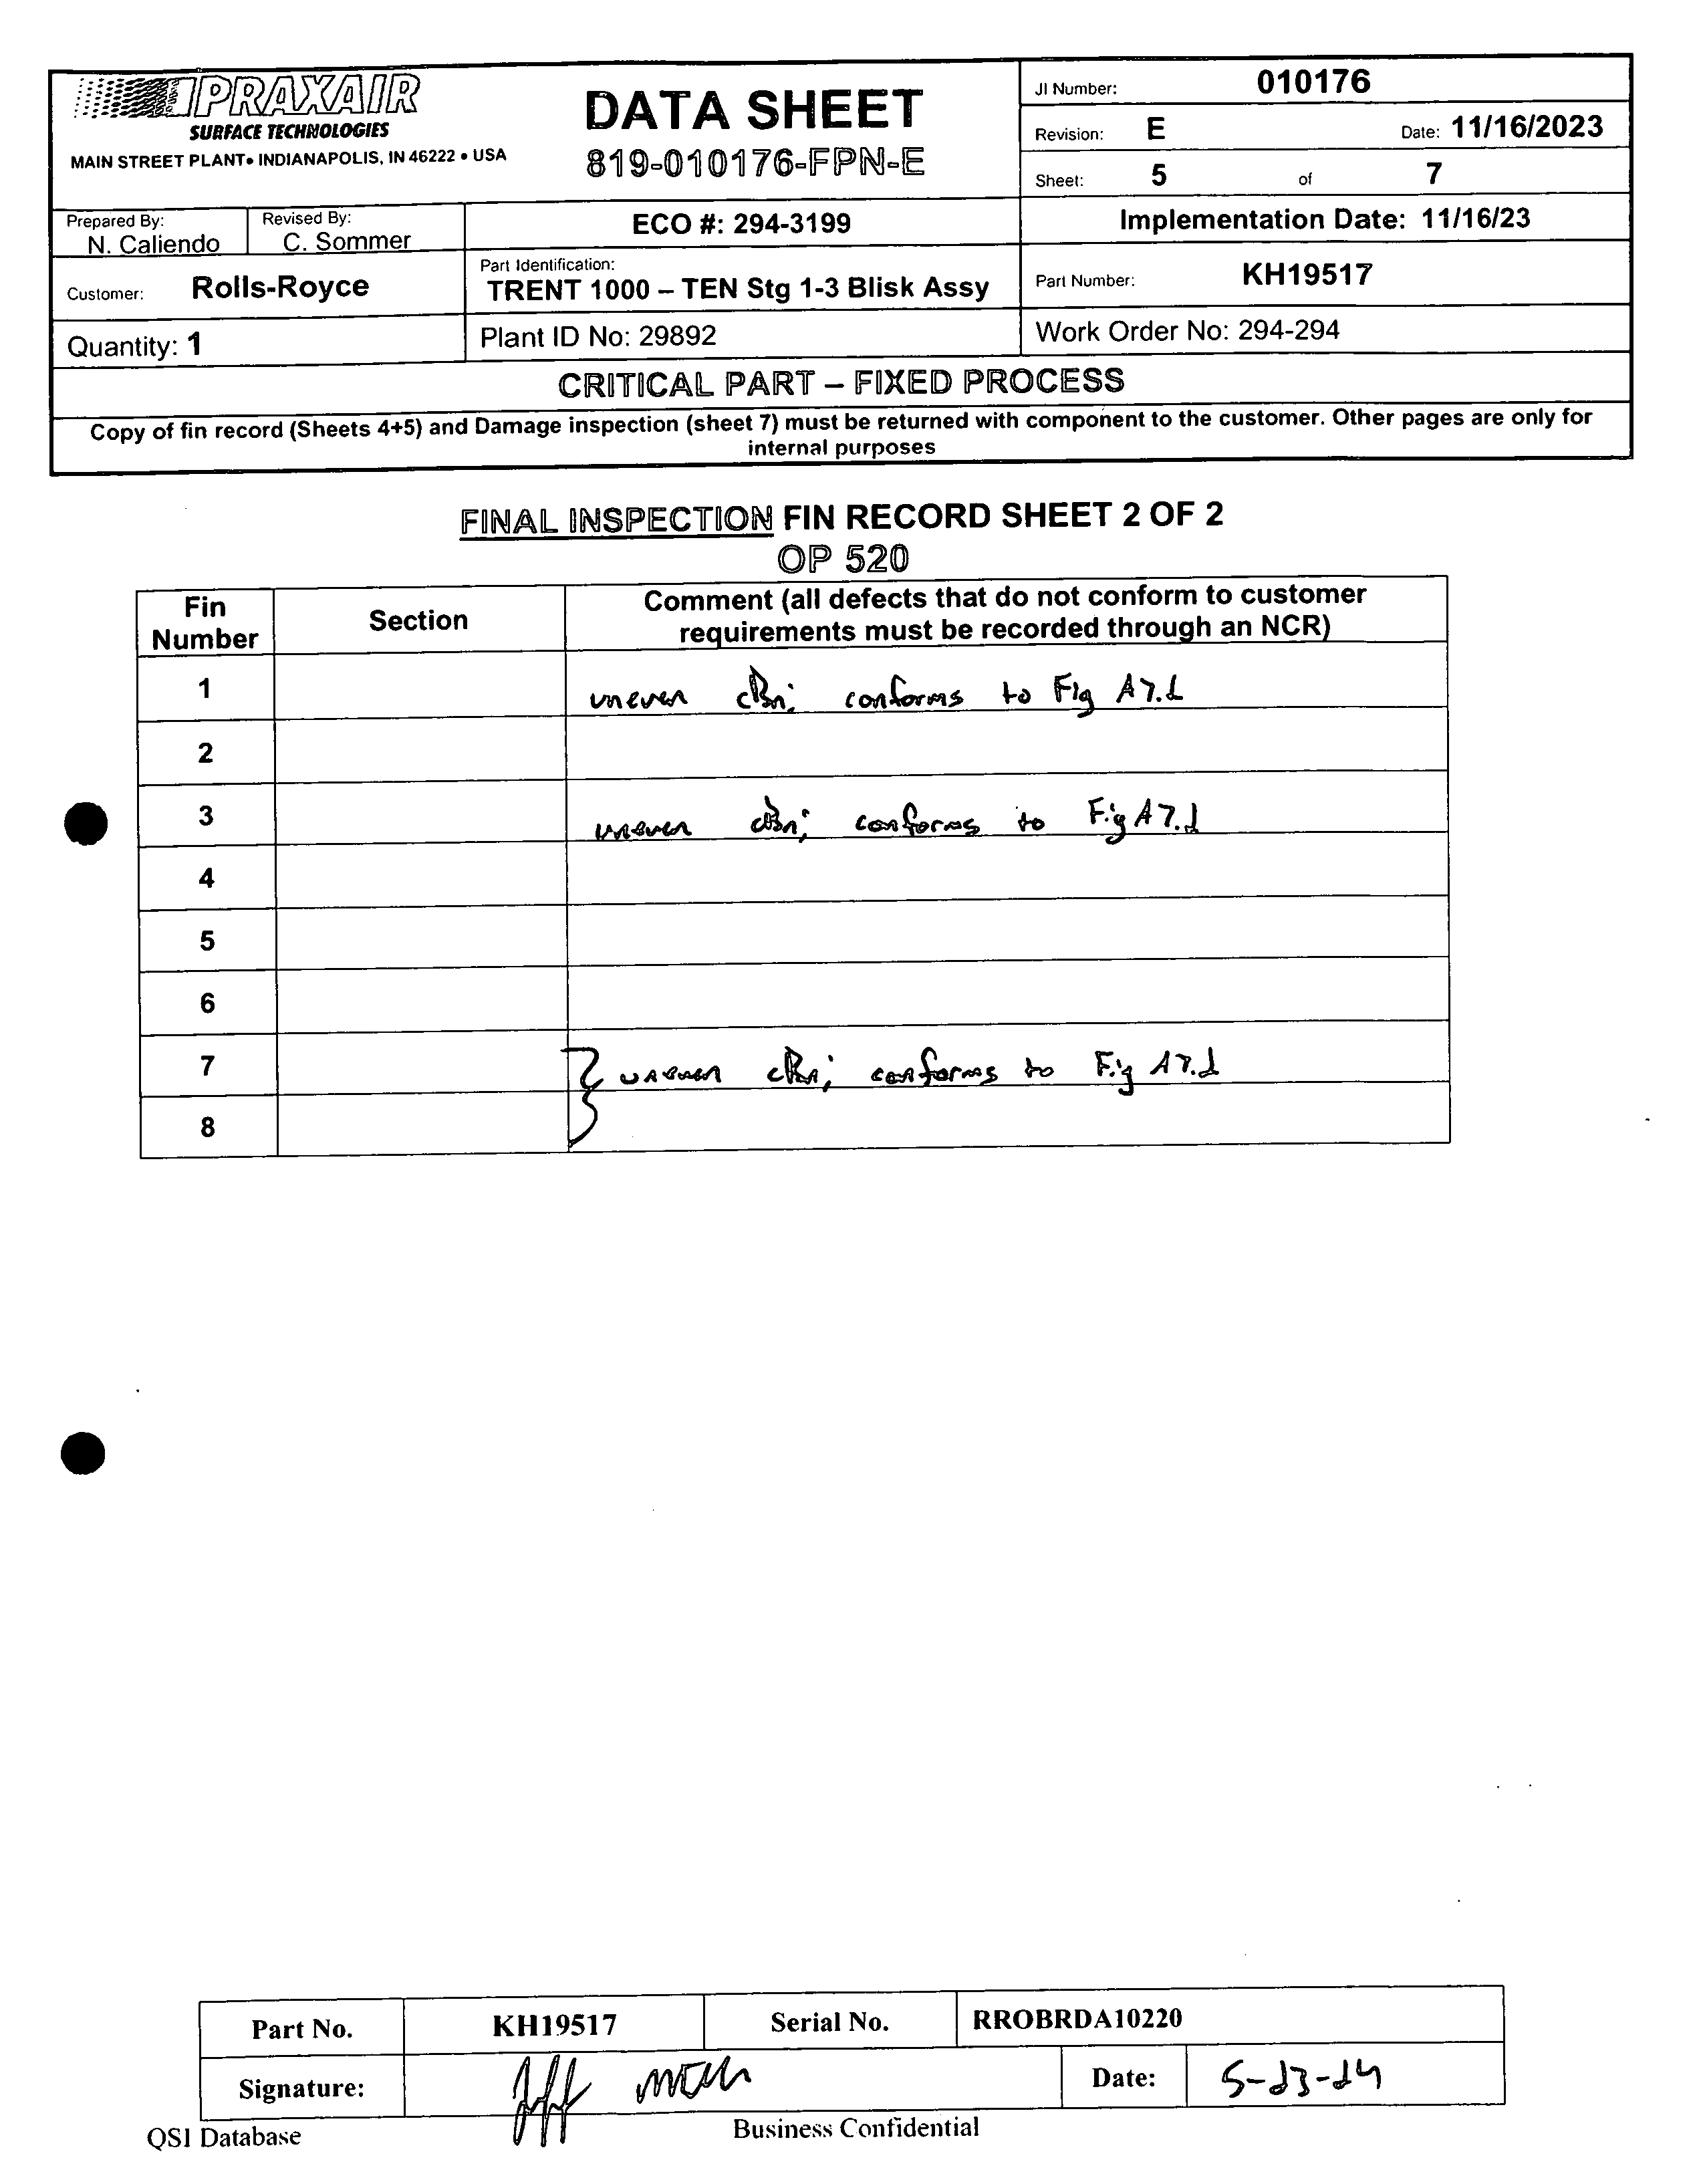 PRAXAIR
SURFACE TECHNOLOGIES
MAIN STREET PLANT• INDIANAPOLIS, IN 46222 • USA
DATA SHEET
819-010176-FPN-E
JI Number: 010176
Revision: E Date: 11/16/2023
Sheet: 5 of 7
Prepared By: N. Caliendo
Revised By: C. Sommer
ECO #: 294-3199
Implementation Date: 11/16/23
Customer: Rolls-Royce
Part Identification:
TRENT 1000 – TEN Stg 1-3 Blisk Assy
Part Number: KH19517
Quantity: 1
Plant ID No: 29892
Work Order No: 294-294
CRITICAL PART – FIXED PROCESS
Copy of fin record (Sheets 4+5) and Damage inspection (sheet 7) must be returned with component to the customer. Other pages are only for
internal purposes
FINAL INSPECTION FIN RECORD SHEET 2 OF 2
OP 520
Fin Number
Section
Comment (all defects that do not conform to customer
requirements must be recorded through an NCR)
1 uneven cBn; conforms to Fig A7.2
2
3 uneven cBn; conforms to Fig A7.2
4
5
6
7 uneven cBn; conforms to Fig A7.2
8
Part No. KH19517 Serial No. RROBRDA10220
Signature: Date: 5-23-24
QSI Database
Business Confidential